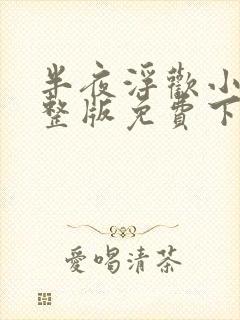 半夜浮歡小
整版免費下
愛喝清茶